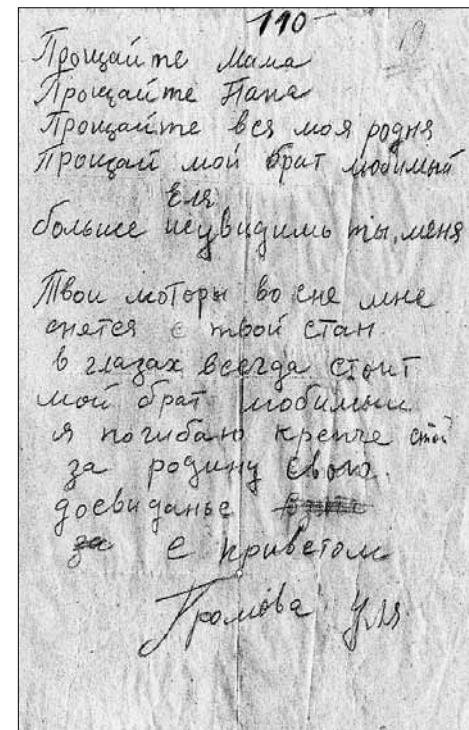 110
19
Прощайте Мама
Прощайте Папа
Прощайте вся моя родня
Прощай мой брат любимый
Еля
больше неувидишь ты, меня
Твои моторы во сне мне
снятся с твой стан
в глазах всегда стоит
мой брат любимый
я погибаю крепче стой
за родину свою.
досвиданье
за
с приветом
Громова Уля